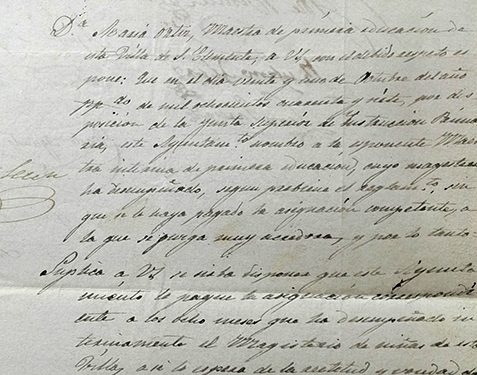 Dª María Ortiz, Maestra de primera educacion de
esta Villa de S. Clemente, a VS. con el debido respeto es
pone: Que en el dia veinte y uno de Octubre del año
ppdo de mil ochocientos cuarenta y siete, por dis
posicion de la Junta Superior de Instruccion Prima
aria, este Ayuntamto nombró a la esponente Maes
tra interina de primera educacion, cuyo magisterio
ha desempeñado, segun previene el reglamto, sin
que se le haya pagado la asignacion competente, a
la que se juzga muy acredora, y por lo tanto
Suplica a VS. se sirva disponer que este Ayunta
miento le pague la asignacion correspondi
ente a los ocho meses que ha desempeñado in
terinamente el Magisterio de niñas de esta
Villa, asi lo espera de la rectitud y